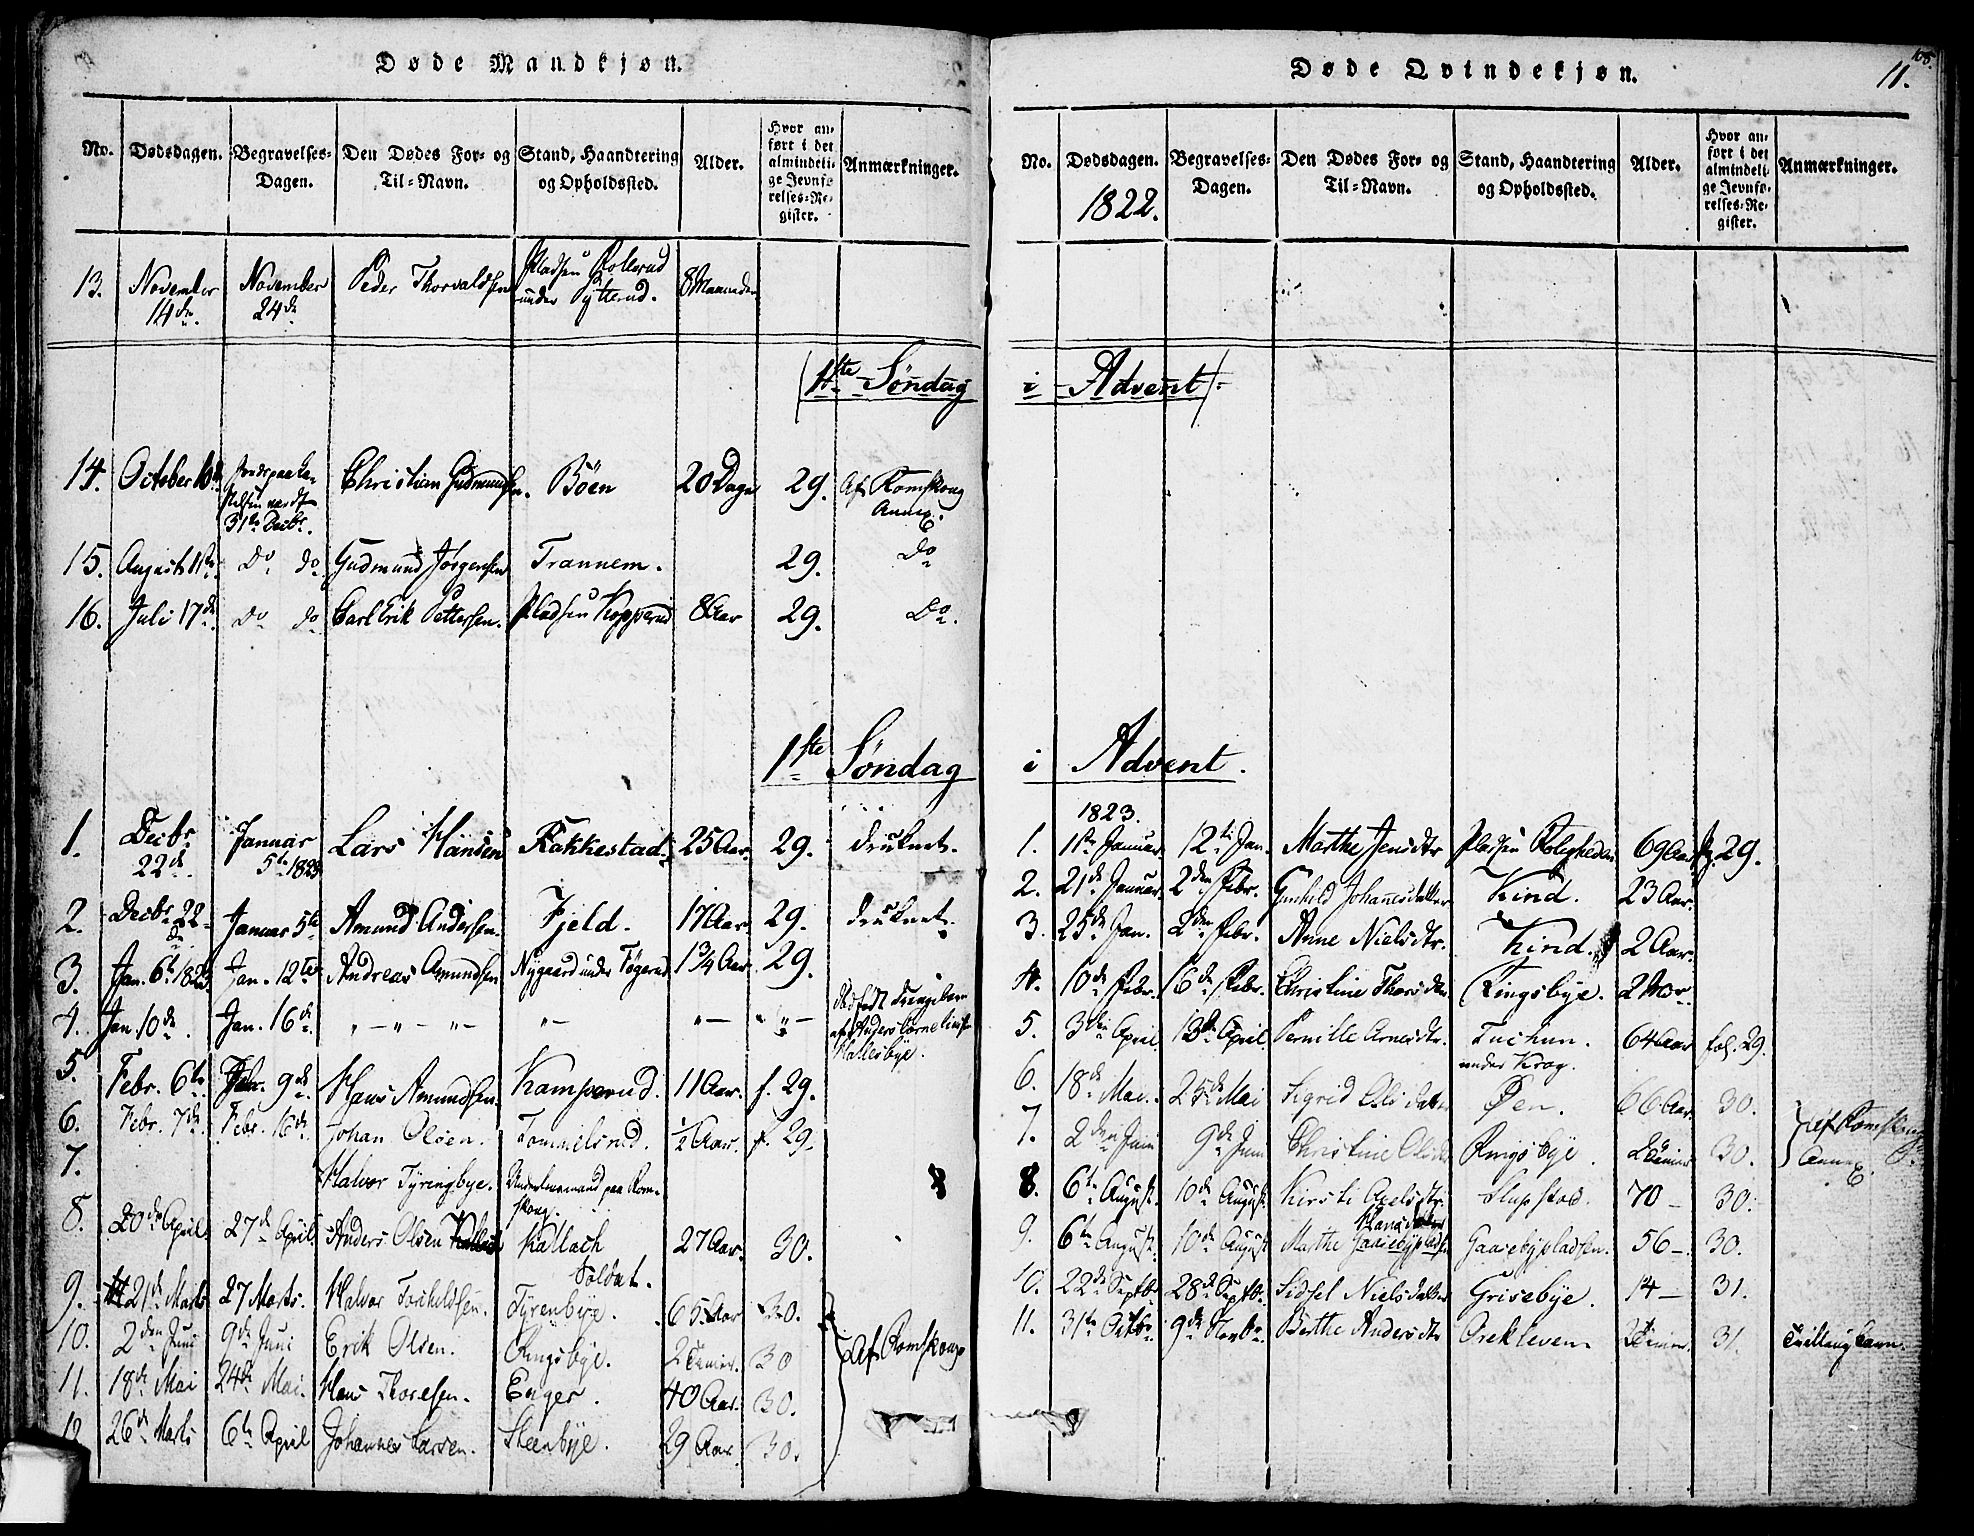 Døde Mandkjøn.
No. Dødsdagen. Begravelses-Dagen. Den Dødes For- og Til-Navn. Stand, Haandtering og Opholdssted. Alder. Hvor anført i det almindelige Jevnførelses-Register. Anmærkninger.
13. November 14de November 24de Peder Thorvaldsen Pladsen Rollerud under Pytterud. 8 Maaneder
1ste Søndag i Advent
14. October Christian Gudmundsen. Böen 20 Dage 29. Af Romskoug Annex.
31te Decbr.
15. August 11te Do do Gudmund Jörgensen Trannem. 29. Do
16. Juli 17de Do do Carl Erik Pettersen. Pladsen Kopperud 8 Aar 29. Do.
1ste Søndag i Advent.
1. Decbr. 22de Januar 5te 1823 Lars Hansen Rakkestad. 25 Aar. 29. druknet.
2. Decbr. 22de Januar 5te Amund Andersen. Fjeld. 17 Aar. 29. druknet.
3. Jan. 6te 1823 Jan. 12te Andreas Amundsen Nygaard under Tögerud 1 3/4 Aar 29.
4. Jan. 10de Jan. 16de " — " — " — " — " — " " — dödfödt Drengebarn af Anders Hallesbye.
5. Febr. 6te Febr. 9de Hans Amundsen. Kamperud. 11 Aar. f. 29.
6. Febr. 7de Febr. 16de Johan Olsen. Tommelsrud. 1/2 Aar. f. 29.
7. Halvor Tyringbye. paa Romskoug.
8. 20de April 27de April Anders Olsen Kallach Soldat. 27 Aar. 30.
9. 21de Marts 27 Marts. Halvor Torkeldsen. Tyrenbye. 65 Aar 30.
10. 2den Juni 9de Juni Erik Olsen. Ringsbye. 2 Timer. 30 Af Romskoug
11. 18de Mai 24de Mai. Hans Thoresen. Enger. 40 Aar. 30.
12. 26de Marts 6te April Johannes Larsen. Steenbye. 29 Aar 30.
Døde Qvindekjøn.
108.
11.
No. Dødsdagen. 1822. Begravelses-Dagen. Den Dødes For- og Til-Navn. Stand, Haandtering og Opholdssted. Alder. Hvor anført i det almindelige Jevnførelses-Register. Anmærkninger.
1823.
1. 1ste Januar 12te Jan. Marthe Jensdtr Pladsen Roligheden 69 Aar 29.
2. 21de Januar. 2den Febr. Gunhild Johannesdatter Kind. 23 Aar.
3. 25de Jan. 2den Febr. Anne Nielsdtr. Kind. 2 Aar.
4. 10de Febr. 16de Febr. Christine Thorsdtr Ringsbye. 2 Aar
5. 3die April 13de April. Pernille Arnesdtr. under Krog. 64 Aar fol. 29.
6. 18de Mai. 25de Mai Sigrid Olsdatter Öen. 66 Aar. 30.
7. 2den Juni 9de Juni Christine Olsdtr Ringsbye. 2 Timer 30. af Romskoug Annex.
8. 6te August. 10de August Kirsti Axelsdtr. Slupstad. 70 — 30.
9. 6te August. 10de August Marthe Hansdatter Gaasebypladsen. 56 — 30.
10. 22de Septbr. 28de Septbr. Sidsel Nielsdatter Grisebye. 14 — 31.
11. 31te Octbr. 9de Novbr. Berthe Andersdtr Örekleven Timer. 31. Tvillingbarn.